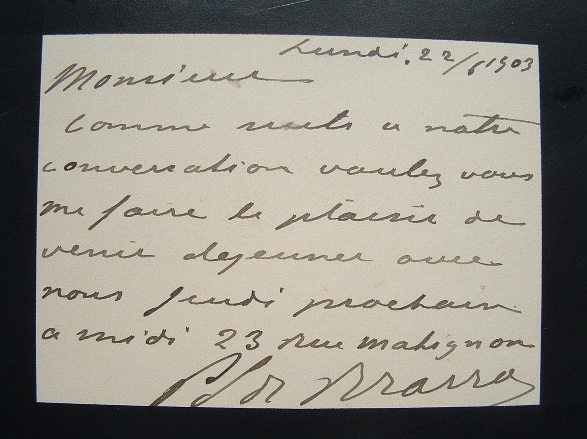 Lundi. 22/6 1903
Monsieur
Comme suite a notre
conversation voulez vous
me faire le plaisir de
venir dejeuner avec
nous Jeudi prochain
a midi 23 rue matignon
P. de Brazza